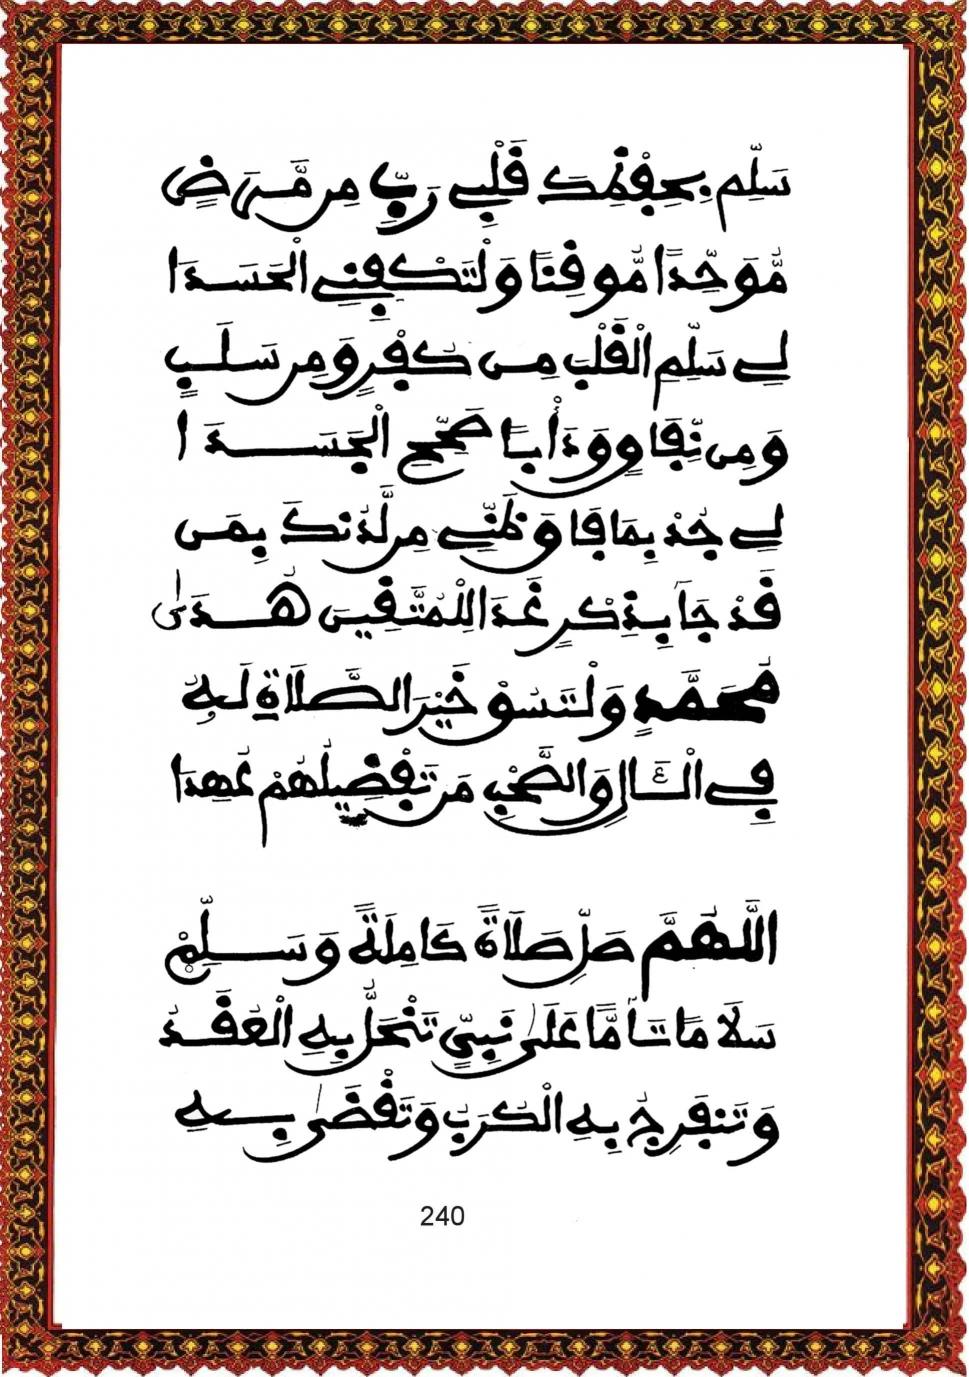 سَلِّم بِحِفْظِكَ قَلْبِي رَبِّ مِن مَّرَضٍ
مُّوَحِّدًا مُّوقِنًا وَلْتَكْفِنِي الْحَسَدَا
لِي سَلِّمِ الْقَلْبَ مِن كُفْرٍ وَمِن سَلَبٍ
وَمِن نِّفَاقٍ وَدَأْبًا صَحِّحِ الْجَسَدَا
لِي جُدْ بِمَا فَاقَ ظَنِّي مِن لَّدُنكَ بِمَن
قَدْ جَآ بِذِكْرٍ غَدَا لِلْمُتَّقِينَ هُدَى
مُحَمَّدٍ وَلْتَسُقْ خَيْرَ الصَّلَاةِ لَهُ
فِي الْئَالِ وَالصَّحْبِ مَن تَفْضِيلُهُمْ عُهِدَا
اللَّهُمَّ صَلِّ صَلَاةً كَامِلَةً وَسَلِّمْ
سَلَامًا تَآمًّا عَلَى نَبِيٍّ تَنْحَلُّ بِهِ الْعُقَدُ
وَتَنفَرِجُ بِهِ الْكُرَبُ وَتُقْضَى بِهِ
240